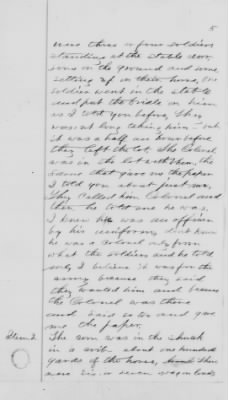 5
were three or four soldiers
standing at the stable door
some on the ground and some
setting up on their horse, one
soldier went in the stable
and put the bridle on him
as I told you before, they
was not long taking him - but
it was a half an hour before
they left the lot. The Colonel
was in the lot with them, the
same that gave me the paper
I told you about just now,
They called him Colonel and
then he told me he was,
I knew he was an officer
by his uniform, dont know
he was a Colonel only from
what the soldiers and he told
me, I believe it was for the
army because they said
they wanted him and because
the Colonel was there
and said so too and gave
me the paper.
Item 2. The corn was in the shuck
in a crib about one hundred
yards of the house, There
were six or seven wagon loads